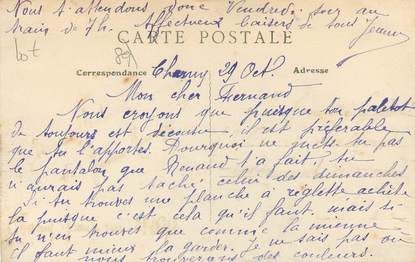 Nous t'attendons donc Vendredi soir au
train de 7h. Affectueux baisers de tous Jeanne
CARTE POSTALE
lot
Correspondance Charny 29 Oct. Adresse
Mon cher Fernand
Nous croyons que puisque ton paletot
de toujours est décousu, il est préférable
que tu l'apportes. Pourquoi ne mets-tu pas
le pantalon que Renaud t'a fait, tu
n'aurais pas taché celui des dimanches
si tu trouves une planche à réglette achète
la puisque c'est cela qu'il faut, mais si
tu n'en trouves que comme la mienne
il faut mieux la garder. Je ne sais pas où
nous trouverons des couleurs.